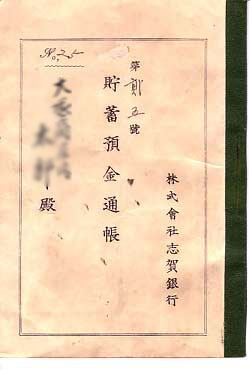 No. 25
第貳五號
貯蓄預金通帳
殿
株式會社志賀銀行